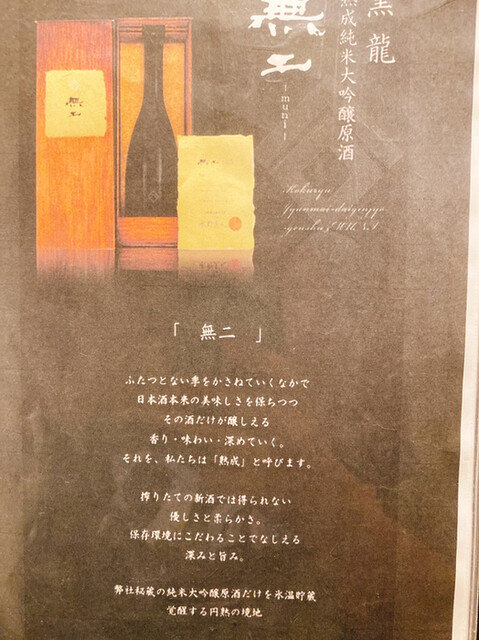 黒龍
熟成純米大吟醸原酒
無二
-muni-
Kokuryu
無二
無二
「 無二 」
ふたつとない季をかさねていくなかで
日本酒本来の美味しさを保ちつつ
その酒だけが醸しえる
香り・味わい・深めていく。
それを、私たちは「熟成」と呼びます。
搾りたての新酒では得られない
優しさと柔らかさ。
保存環境にこだわることでなしえる
深みと旨み。
弊社秘蔵の純米大吟醸原酒だけを氷温貯蔵
覚醒する円熟の境地